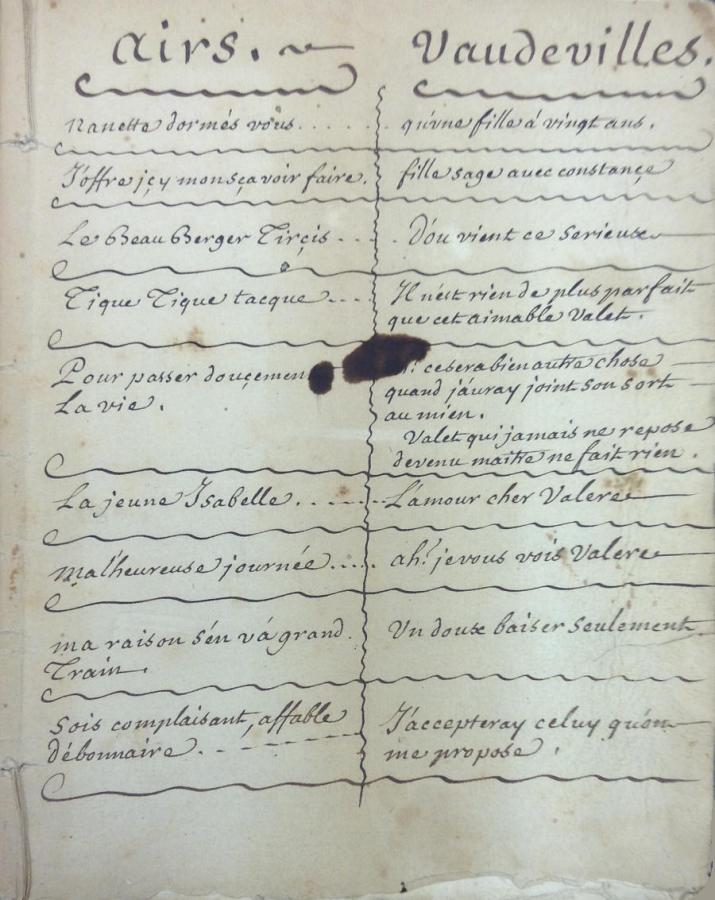 airs. Vaudevilles.
Nanette dormés vous..... qu'vne fille á vingt ans.
J'offre jçy monsçavoir faire. fille sage avec constançe
Le Beau Berger Tirçis.... D'ou vient ce serieux
Tique Tique tacque... Il n'est rien de plus parfait
que cet aimable Valet.
Pour passer douçemen ! cesera bien autre chose
La vie. quand j'auray joint son sort
au mien.
Valet qui jamais ne repose
devenu maitre ne fait rien.
La jeune Isabelle..... L'amour cher Valere
malheureuse journée..... ah! je vous vois Valere
ma raison s'en vá grand Un doux baiser seulement.
Train.
Sois complaisant, affable J'accepteray celuy qu'on
débonnaire. me propose.